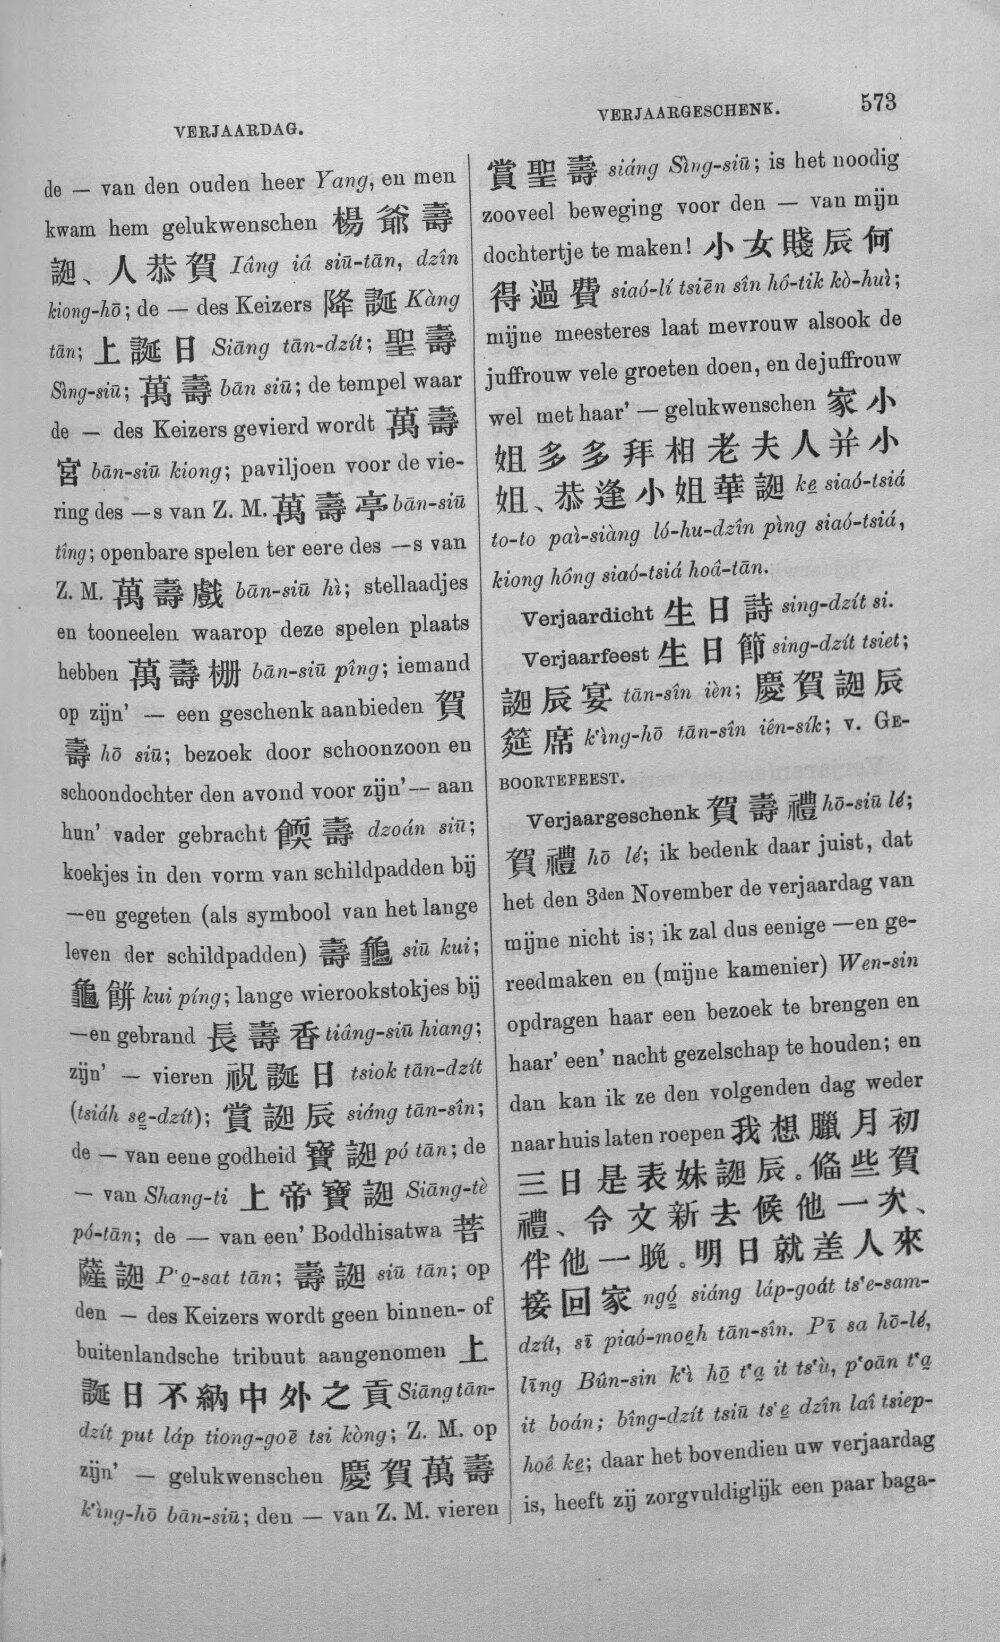 VERJAARDAG.
VERJAARGESCHENK.
573
de — van den ouden heer Yang, en men
kwam hem gelukwenschen 楊爺壽
誕、人恭賀 Iâng iâ siū-tān, dzîn
kiong-hō; de — des Keizers 降誕 Kàng
tān; 上誕日 Siāng tān-dzít; 聖壽
Sìng-siū; 萬壽 bān siū; de tempel waar
de — des Keizers gevierd wordt 萬壽
宮 bān-siū kiong; paviljoen voor de vie-
ring des —s van Z. M. 萬壽亭 bān-siū
tîng; openbare spelen ter eere des —s van
Z. M. 萬壽戲 bān-siū hì; stellaadjes
en tooneelen waarop deze spelen plaats
hebben 萬壽棚 bān-siū pîng; iemand
op zijn' — een geschenk aanbieden 賀
壽 hō siū; bezoek door schoonzoon en
schoondochter den avond voor zijn' — aan
hun' vader gebracht 餪壽 dzoán siū;
koekjes in den vorm van schildpadden bij
—en gegeten (als symbool van het lange
leven der schildpadden) 壽龜 siū kui;
龜餅 kui píng; lange wierookstokjes bij
—en gebrand 長壽香 tiâng-siū hiang;
zijn' — vieren 祝誕日 tsiok tān-dzít
(tsiáh se̤-dzít); 賞誕辰 siáng tān-sîn;
de — van eene godheid 寶誕 pó tān; de
— van Shang-ti 上帝寶誕 Siāng-tè
pó-tān; de — van een' Boddhisatwa 菩
薩誕 P'o̤-sat tān; 壽誕 siū tān; op
den — des Keizers wordt geen binnen- of
buitenlandsche tribuut aangenomen 上
誕日不納中外之貢 Siāng tān-
dzít put láp tiong-goē tsi kòng; Z. M. op
zijn' — gelukwenschen 慶賀萬壽
k'ìng-hō bān-siū; den — van Z. M. vieren
賞聖壽 siáng Sìng-siū; is het noodig
zooveel beweging voor den — van mijn
dochtertje te maken! 小女賤辰何
得過費 siaó-lí tsiēn sîn hô-tik kò-huì;
mijne meesteres laat mevrouw alsook de
juffrouw vele groeten doen, en de juffrouw
wel met haar' — gelukwenschen 家小
姐多多拜相老夫人并小
姐、恭逢小姐華誕 ke̤ siaó-tsiá
to-to paì-siàng ló-hu-dzîn pìng siaó-tsiá,
kiong hông siaó-tsiá hoâ-tān.
Verjaardicht 生日詩 sing-dzít si.
Verjaarfeest 生日節 sing-dzít tsiet;
誕辰宴 tān-sîn ièn; 慶賀誕辰
筵席 k'ìng-hō tān-sîn iên-sík; v. GE-
BOORTEFEEST.
Verjaargeschenk 賀壽禮 hō-siū lé;
賀禮 hō lé; ik bedenk daar juist, dat
het den 3den November de verjaardag van
mijne nicht is; ik zal dus eenige —en ge-
reedmaken en (mijne kamenier) Wen-sin
opdragen haar een bezoek te brengen en
haar' een' nacht gezelschap te houden; en
dan kan ik ze den volgenden dag weder
naar huis laten roepen 我想臘月初
三日是表妹誕辰。俻些賀
禮、令文新去候他一次、
伴他一晚。明日就差人來
接回家 ngó̤ siáng láp-goát ts'e-sam-
dzít, sī piaó-moe̤h tān-sîn. Pī sa hō-lé,
līng Bûn-sin k'ì hō̤ t'a̤ it ts'ù, p'oān t'a̤
it boán; bîng-dzít tsiū ts'e̤ dzîn laî tsiep-
hoê ke̤; daar het bovendien uw verjaardag
is, heeft zij zorgvuldiglijk een paar baga-